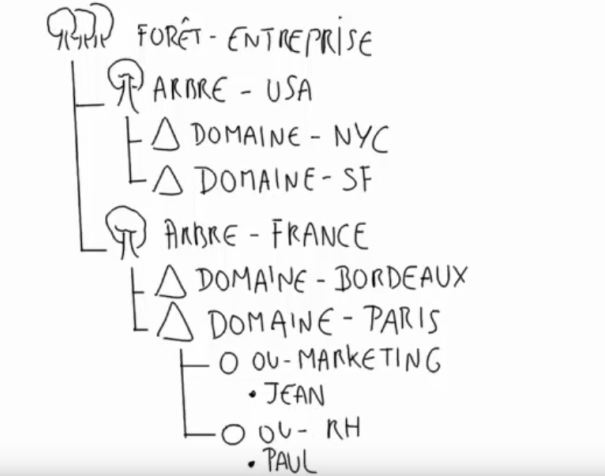 FORÊT - ENTREPRISE
ARBRE - USA
DOMAINE - NYC
DOMAINE - SF
ARBRE - FRANCE
DOMAINE - BORDEAUX
DOMAINE - PARIS
OU - MARKETING
• JEAN
OU - RH
• PAUL